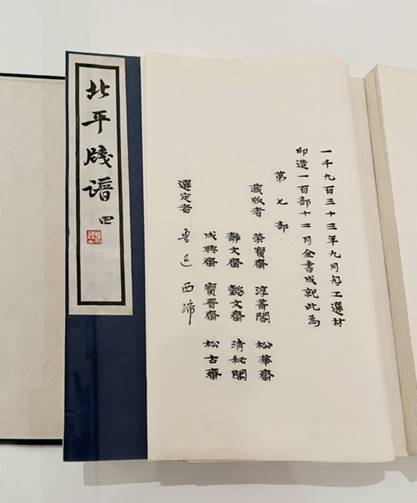 北平牋譜 四
一千九百三十三年九月勼工選材
印造一百部十二月全書成就此為
第七部
藏版者 榮寶齋 淳菁閣 松華齋
靜文齋 懿文齋 清秘閣
成興齋 寶晉齋 松古齋
選定者 魯迅 西諦